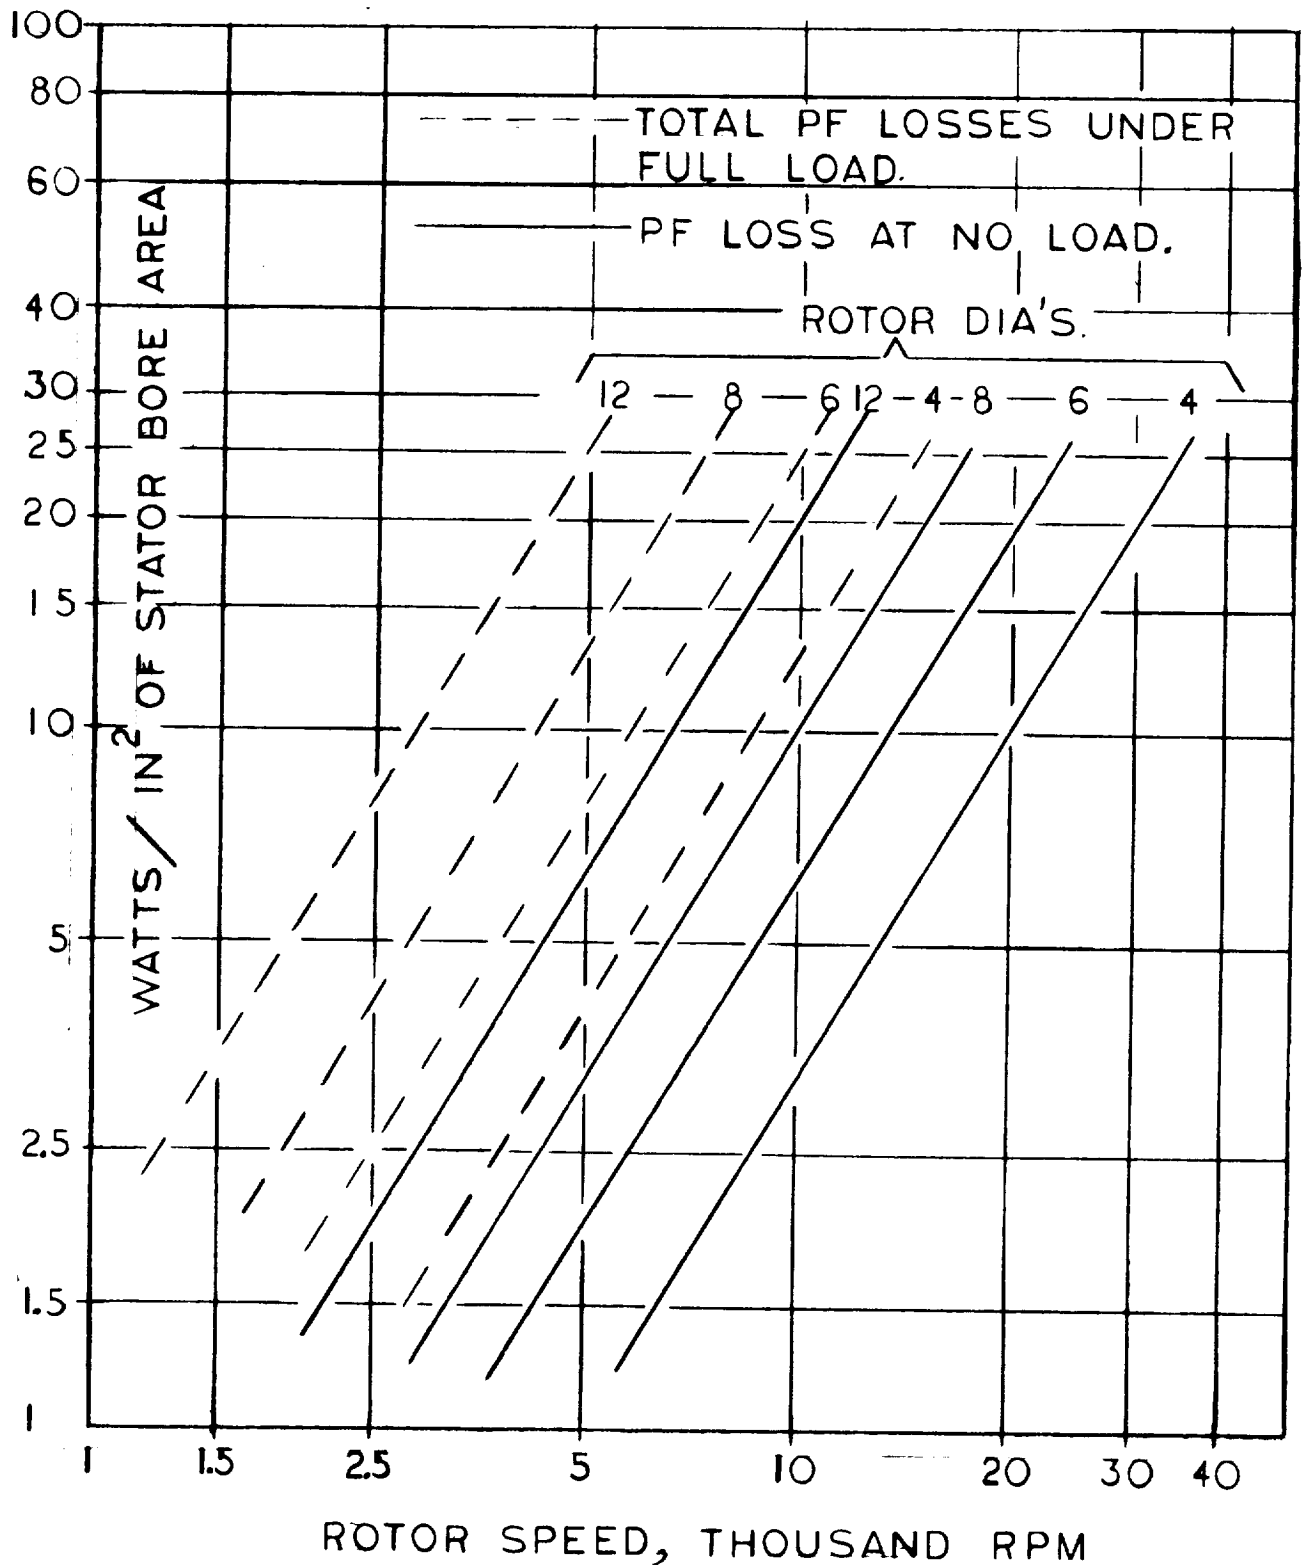 100
80
60
40
30
25
20
15
10
5
2.5
1.5
1
WATTS/IN² OF STATOR BORE AREA
TOTAL PF LOSSES UNDER
FULL LOAD.
PF LOSS AT NO LOAD.
ROTOR DIA'S.
12 — 8 — 6 12 – 4 - 8 — 6 — 4
1 1.5 2.5 5 10 20 30 40
ROTOR SPEED, THOUSAND RPM